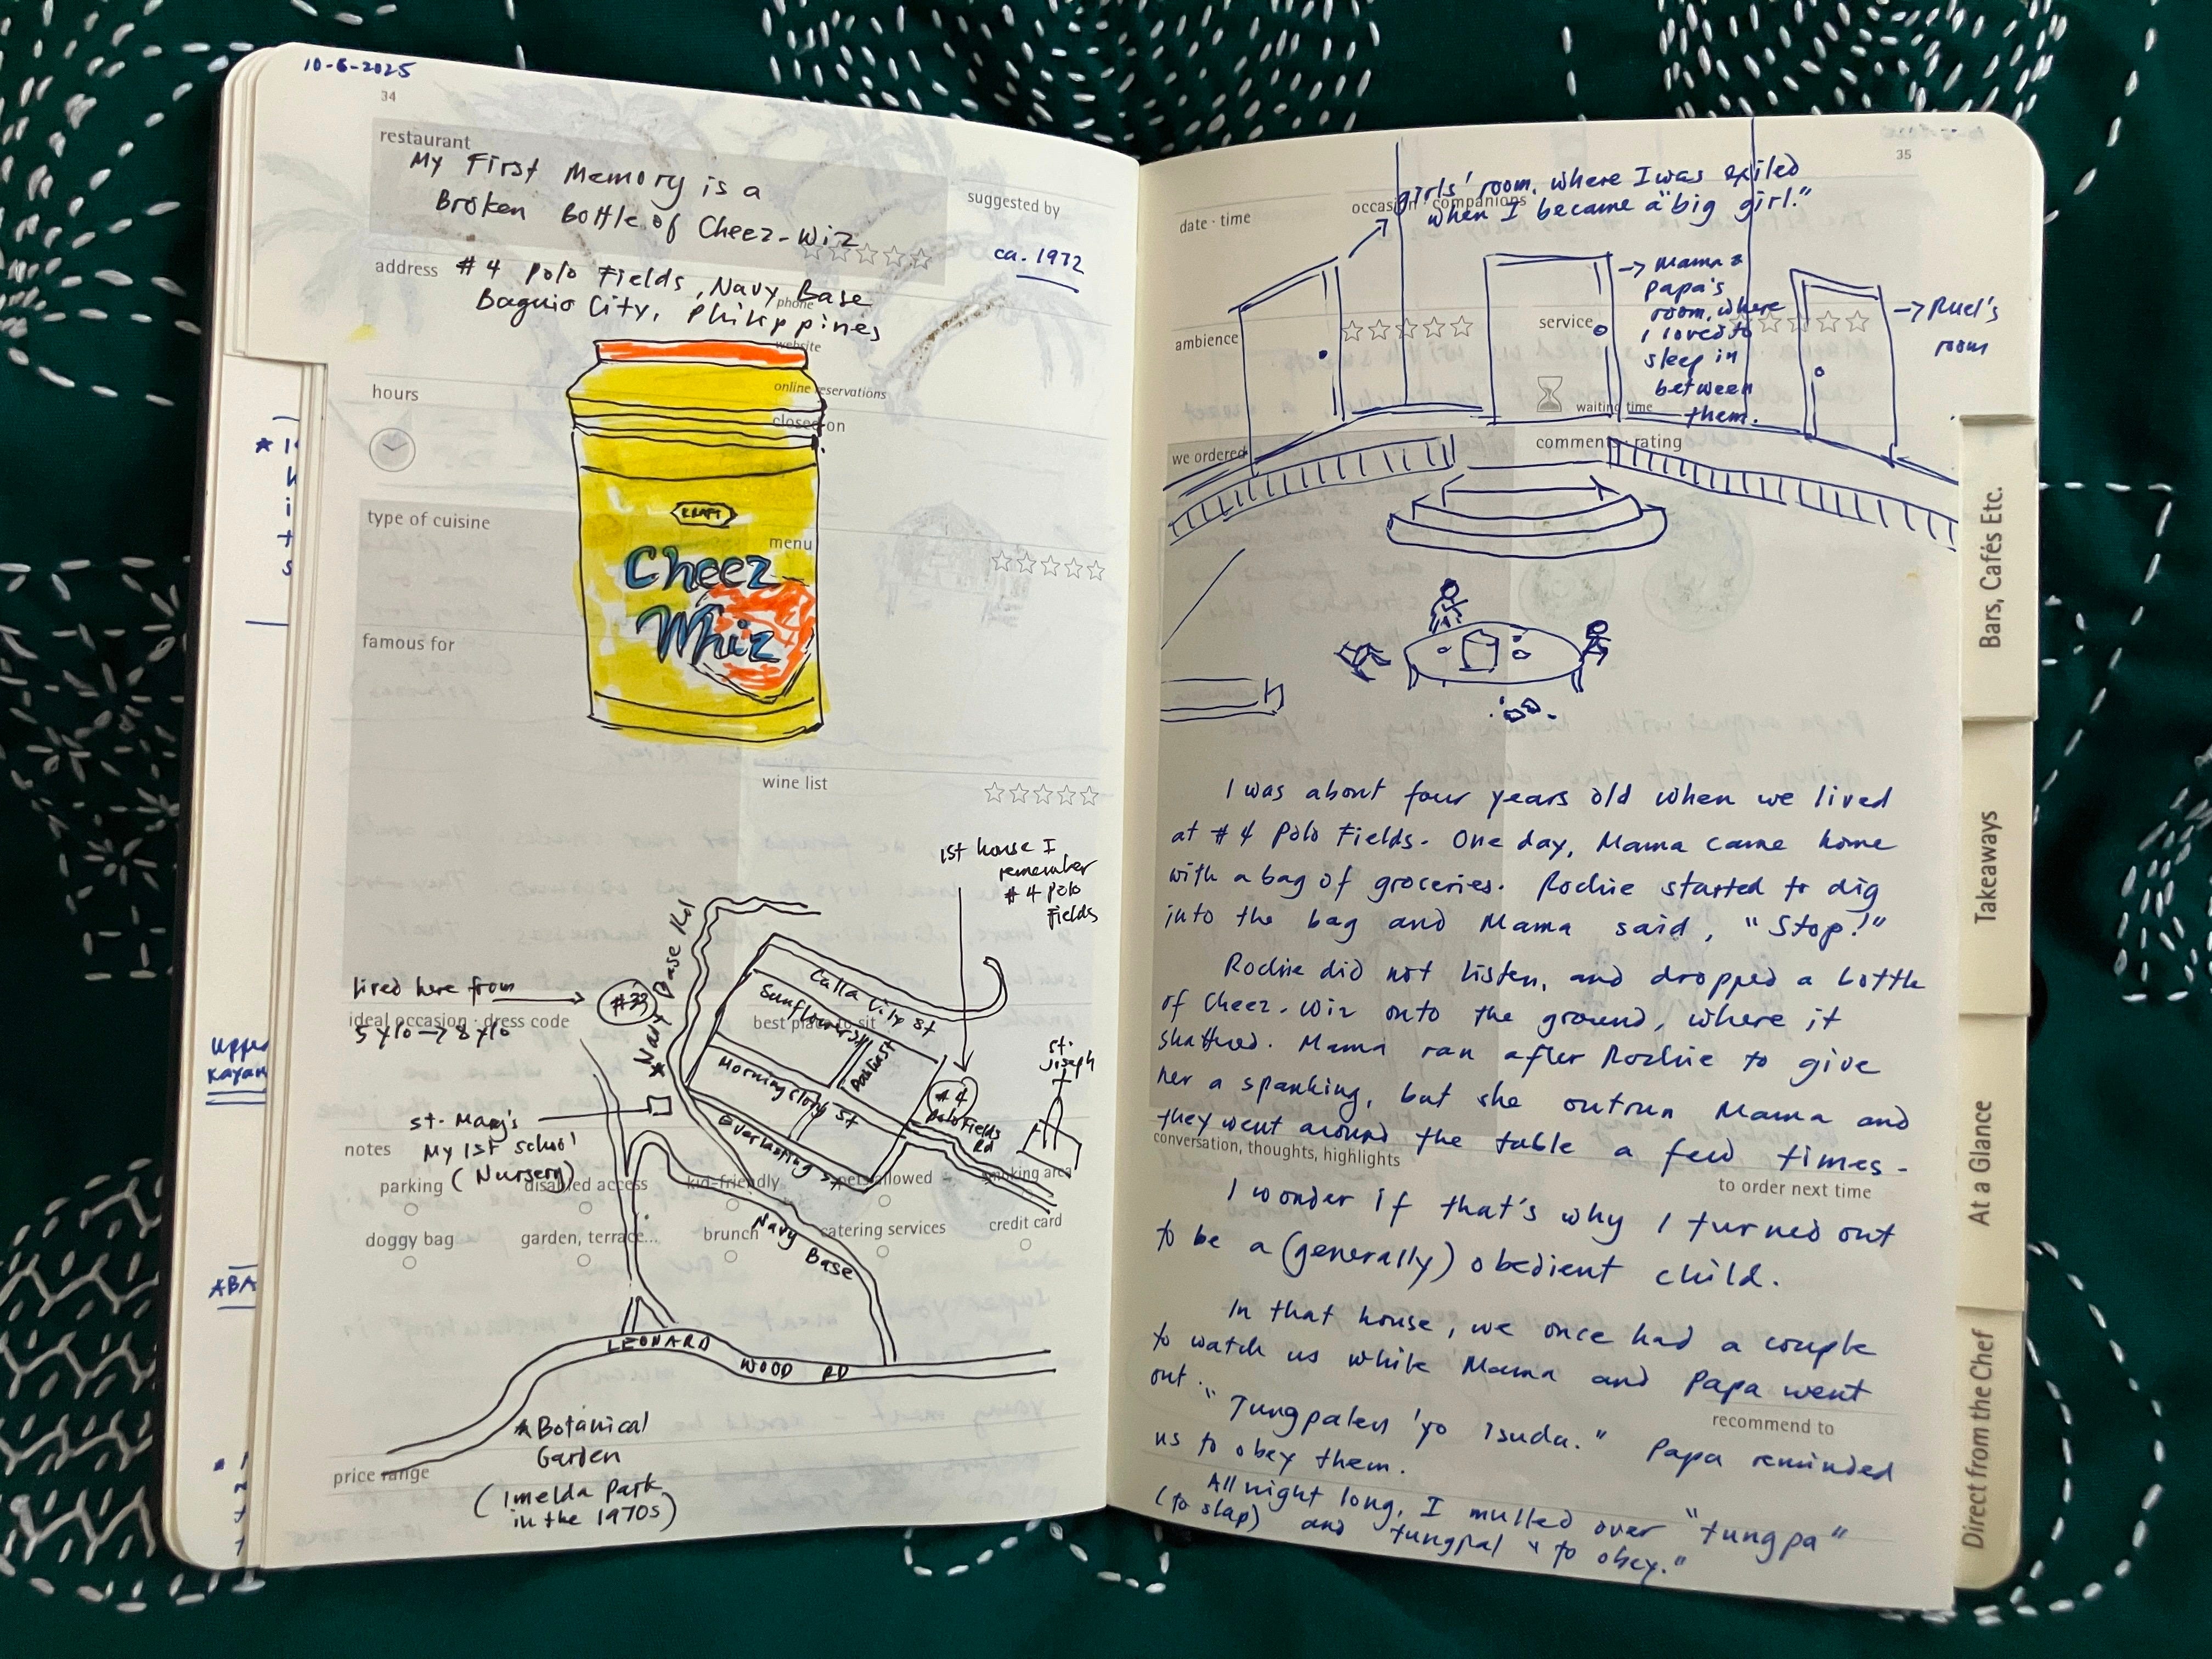 10-6-2025
34
restaurant
My First Memory is a
Broken Bottle of Cheez-Wiz
suggested by
ca. 1972
address
#4 Polo Fields, Navy Base
phone
Baguio City, Philippines
website
hours
online reservations
closed on
type of cuisine
KRAFT
menu
Cheez
Whiz
famous for
wine list
1st house I
remember
#4 Polo
Fields
lived here from
ideal occasion · dress code
5 y/o → 8 y/o
#33
Navy Base Rd
Calla Lily St
Sunflower St
best place to sit
Morning Glory St
Everlasting St
#4
Polo Fields
Rd
St.
Joseph
St. Mary's
My 1st school
(Nursery)
notes
parking
disabled access
kid-friendly
pets allowed
smoking area
doggy bag
garden, terrace...
brunch
catering services
credit card
Navy Base
LEONARD WOOD RD
Botanical
Garden
(Imelda Park
in the 1970s)
price range
Upper
ABA
35
date · time
occasion · companions
girls' room, where I was exiled
when I became a "big girl."
ambience
service
waiting time
Mama &
Papa's
room, where
I loved to
sleep in
between
them.
Ruel's
room
we ordered
comments · rating
I was about four years old when we lived
at #4 Polo Fields. One day, Mama came home
with a bag of groceries. Rochie started to dig
into the bag and Mama said, "Stop!"
Rochie did not listen, and dropped a bottle
of Cheez-Wiz onto the ground, where it
shattered. Mama ran after Rochie to give
her a spanking, but she outrun Mama and
they went around the table a few times.
conversation, thoughts, highlights
to order next time
I wonder if that's why I turned out
to be a (generally) obedient child.
In that house, we once had a couple
to watch us while Mama and Papa went
out. "Tungpalen 'yo isuda." Papa reminded
recommend to
us to obey them.
All night long, I mulled over "tungpa"
(to slap) and tungpal "to obey."
Bars, Cafés Etc.
Takeaways
At a Glance
Direct from the Chef